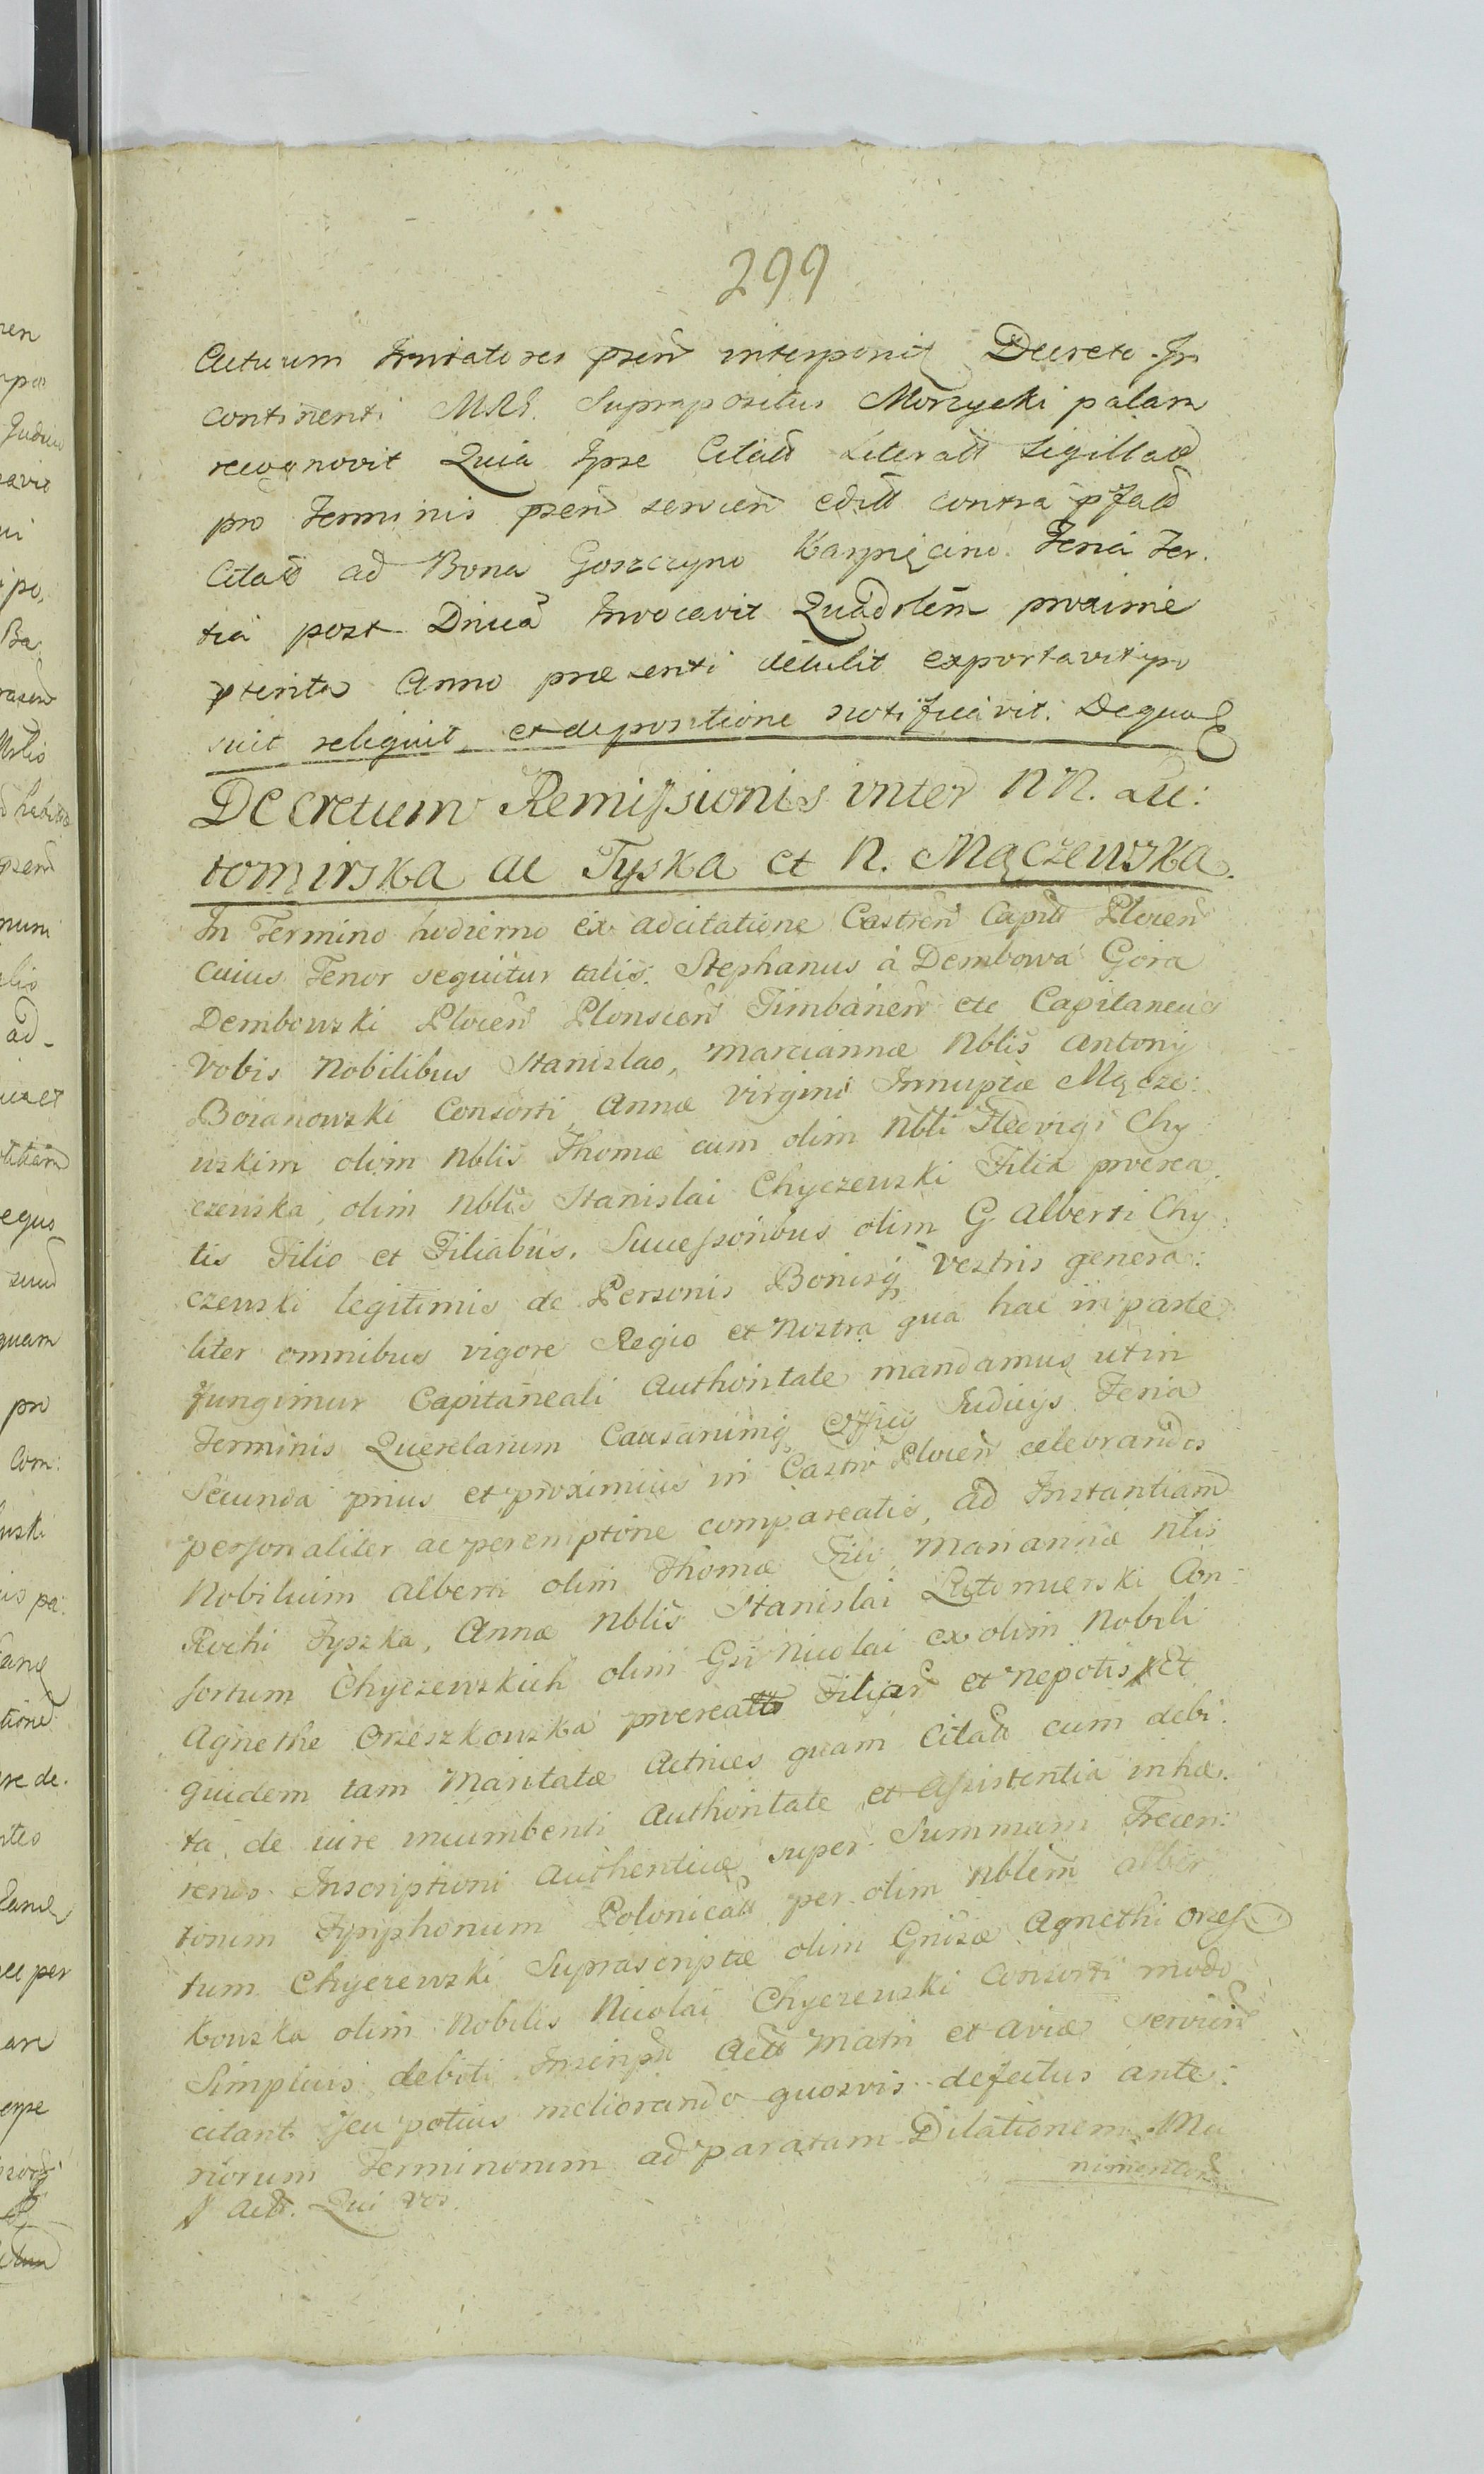 299
Acturum Invitatores psen̄ interponit Decreto. In
continenti MRE. Suprapositus Morzycki palam
recognovit Quia Ipse Citatt Literatt Sigillatt
pro Terminis psen̄ servien̄ editt contra pfatt
Citatt ad Bona Goszczyno Karpięcino. Feria Ter.
tia post Dnicā Invocavit Quadrlēm proxime
pterita Anno praesenti detulit exportavit po
suit reliquit, et de positione notificavit. De quo
Decretum Remissionis inter NN. Lu:
tomirska ac Tyska et N. Mączewska.
In Termino hodierno ex adcitatione Castren̄ Capitt Plocen̄
cuius Tenor sequitur talis. Stephanus à Dembowa Gora
Dembowski Plocen̄ Plonscen̄ Timbarien̄ etc Capitaneus
Vobis Nobilibus Stanislao, Marciannae Nblis Antonij
Boianowski Consorti, Annae Virgini Innuptae Mącze:
wskim olim Nblis Thomae cum olim Nbli Hedvigi Chy
czewska, olim Nblis Stanislai Chyczewski Filia procrea.
tis Filio et Filiabus. Successoribus olim G. Alberti Chy:
czewski legitimis de Personis Bonisq̨ Vestris genera:
liter omnibus vigore Regio et Nostra qua hac in parte
fungimur Capitaneali Authoritate mandamus ut in
Terminis Querelarum Causarumq̨ Officij Iudicijs Feria
Secunda prius et proximius in Castro Plocen̄ celebrandis
personaliter ac peremptorie compareatis, ad Instantiam
Nobilium Alberti olim Thomae Filij Mariannae Nlis
Rochi Tyszka, Annae Nblis Stanislai Lutomierski Con:
sortum Chyczewskich olim Gsi Nicolai ex olim Nobili
Agnethe Orzeszkowska procreatt Filiar̄ et Nepotis ꝟ Et
quidem tam Maritatae Actrices quam Citatt cum debi.
ta de iure incumbenti Authoritate et Assistentia inhae.
rendo Inscriptioni Authenticae super Summam Trecen:
torum Tynphonum Polonicatt per olim Nblem Alber
tum Chyczewski Suprascriptae olim Gnosae Agnethi Orzesz
kowska olim Nobilis Nicolai Chyczewski Consorti modo
Simplicis debiti Inscript Actt Matri et Aviae Servien̄
citant seu potius meliorando quosvis defectus ante:
riorum Terminorum ad paratam Dilationem Mu
nimentor̄
ꝟ Actt. Qui vos.